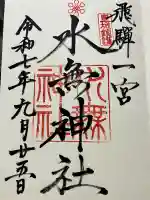 飛騨一宮
水無神社
令和七年九月廿五日